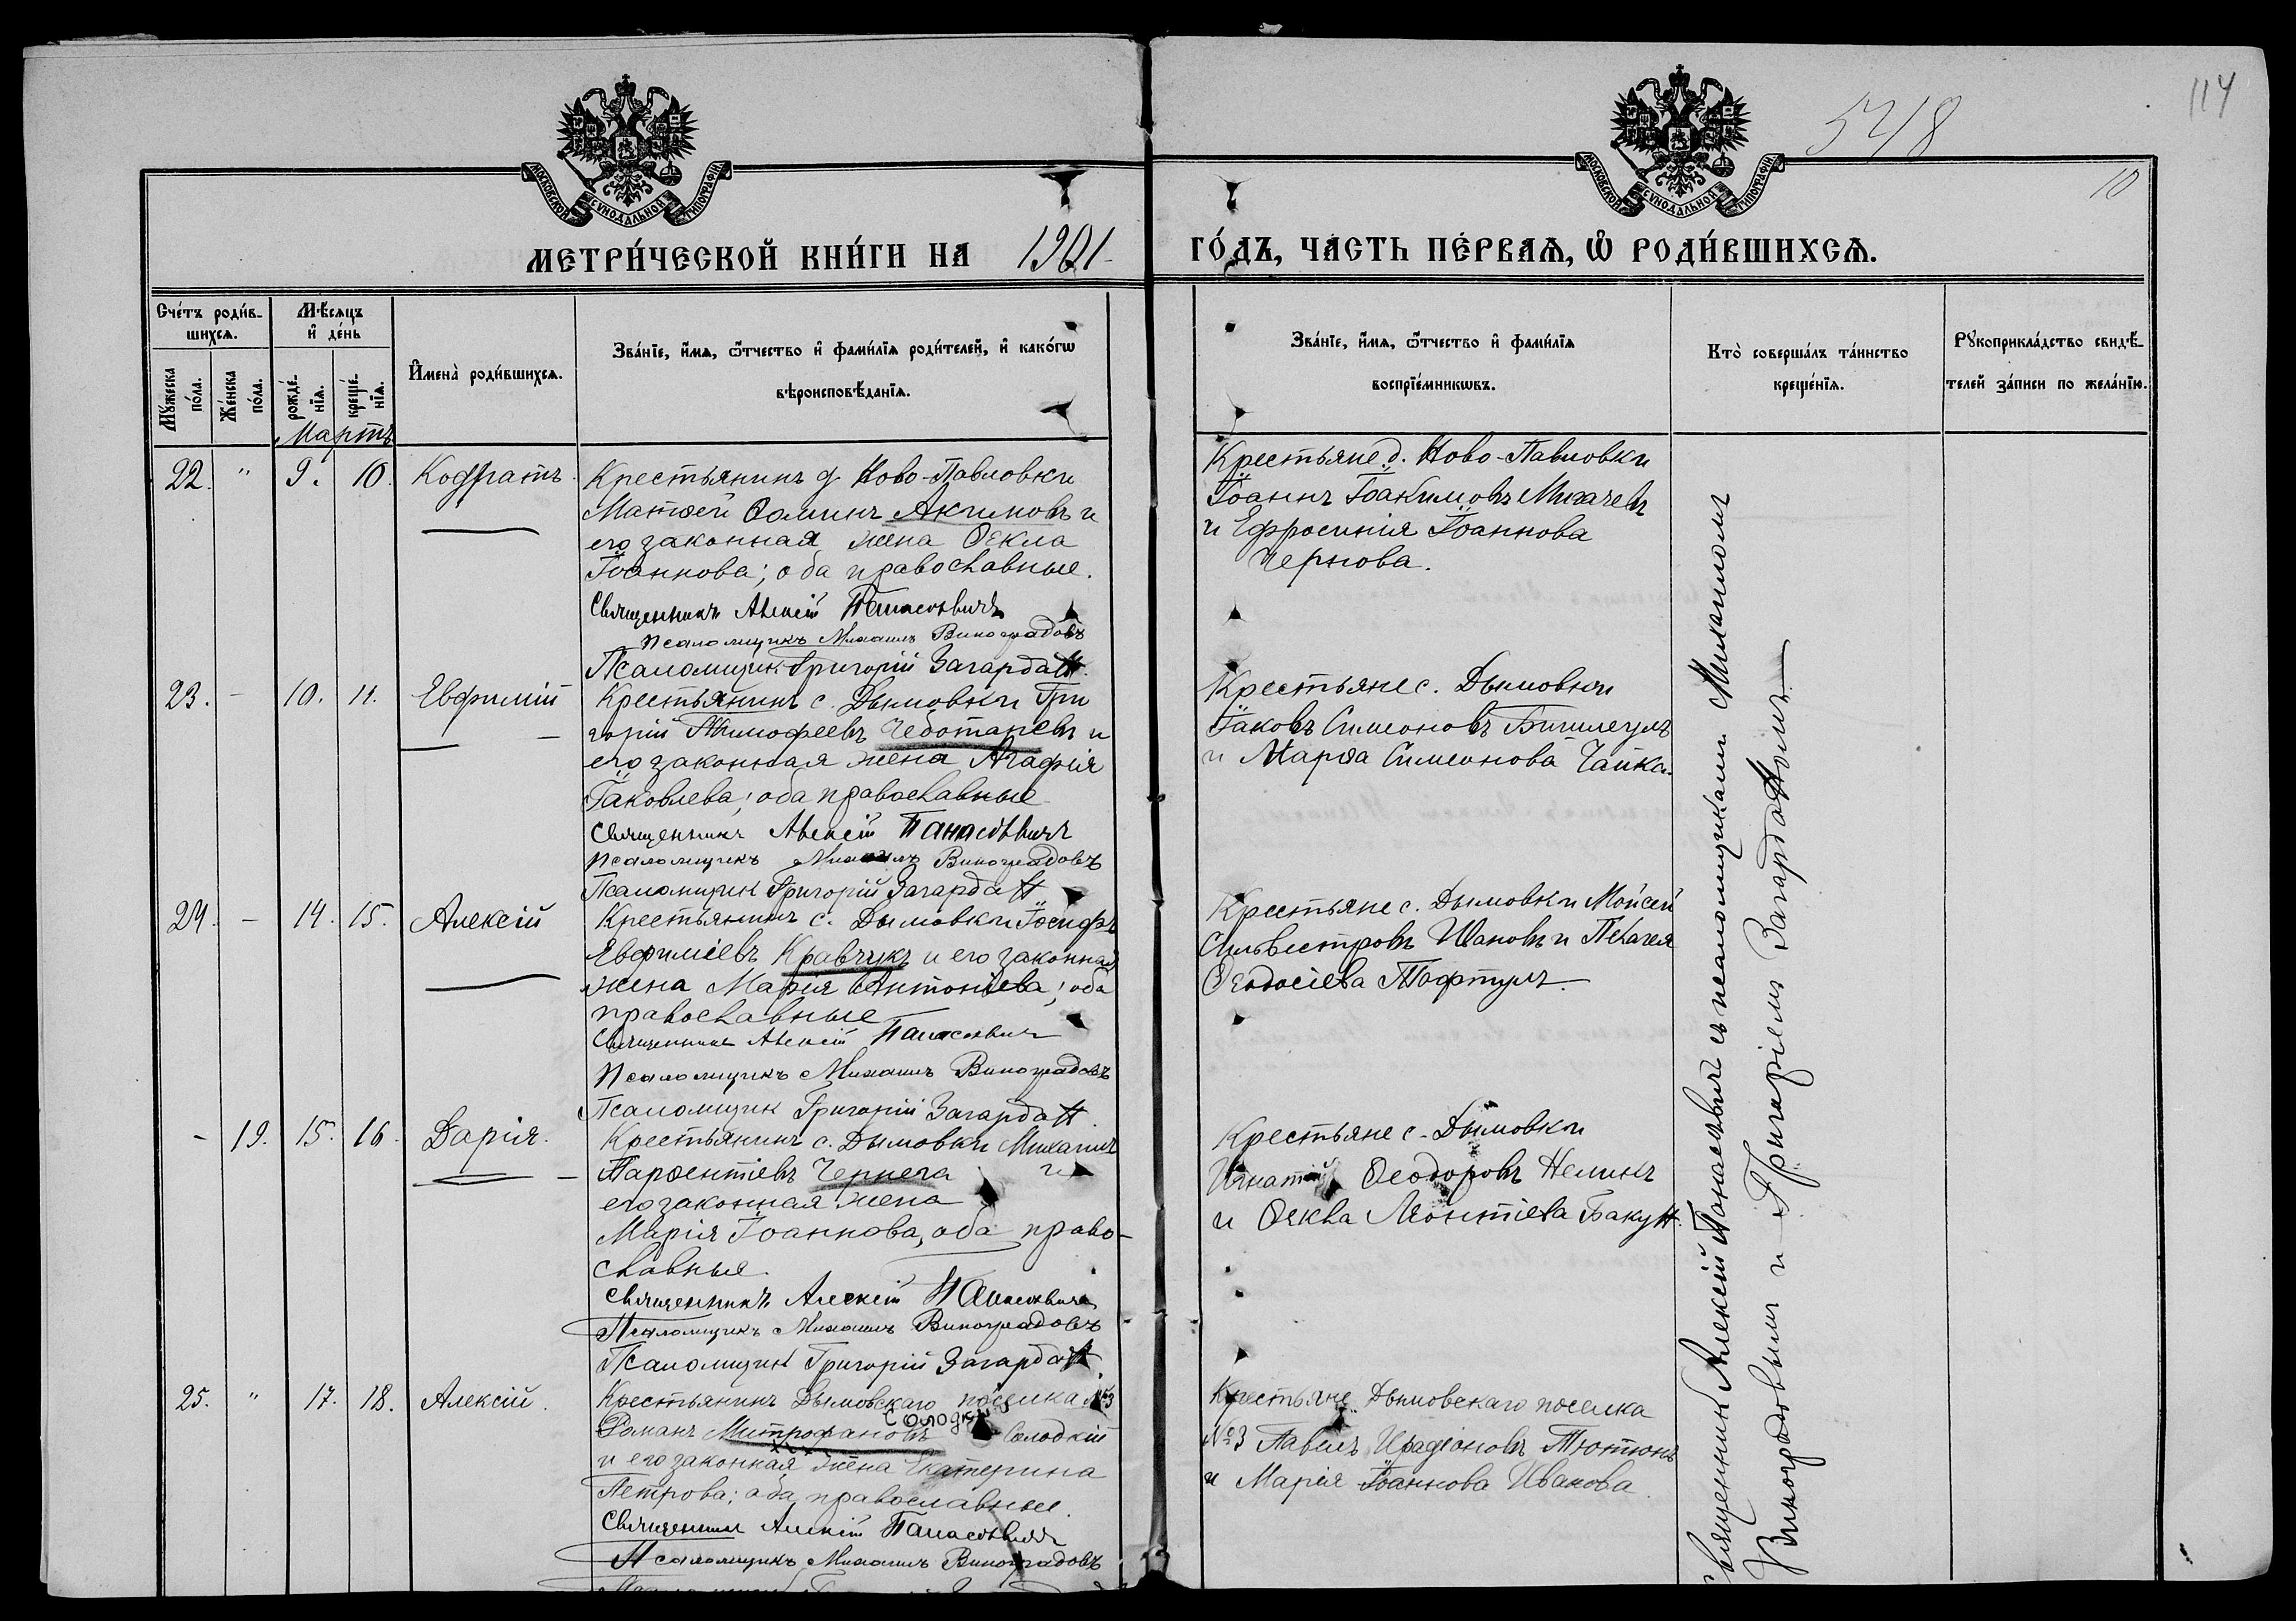 114
548
10
МОСКОВСКОЙ СѴНОДАЛЬНОЙ ТИПОГРАФІИ
МОСКОВСКОЙ СѴНОДАЛЬНОЙ ТИПОГРАФІИ
МЕТРИ́ЧЕСКОЙ КНИ́ГИ НА 1901
ГО́ДЪ, ЧА́СТЬ ПЕ́РВАѦ, Ѿ РОДИ́ВШИХСѦ.
Сче́тъ роди́в-
шихсѧ.
Мꙋжеска по́ла.
Же́нска по́ла.
Мѣ́сѧцъ
и҆ де́нь
рожде́-
нїѧ.
креще́-
нїѧ.
И҆мена̀ роди́вшихсѧ.
Зва́нїе, и҆́мѧ, ѻ҆́тчество и҆ фами́лїѧ роди́телей, и҆ како́гѡ
вѣроисповѣ́данїѧ.
Зва́нїе, и҆́мѧ, ѻ҆́тчество и҆ фами́лїѧ
воспрїе́мникѡвъ.
Кто̀ соверша́лъ та́инство
креще́нїѧ.
Рꙋкоприкла́дство свидѣ́-
телей за́писи по жела́нїю.
Мартъ
22. " 9. 10. Кодратъ
Крестьянинъ д. Ново-Павловки
Матѳей Ѳоминъ Акимовъ и
его законная жена Ѳекла
Іоаннова; оба православные.
Священникъ Алексій Панасевичъ
Псаломщикъ Михаилъ Виноградовъ
Псаломщикъ Григорій Загарданъ
Крестьяне д. Ново-Павловки
Іоаннъ Іоакимовъ Михачевъ
и Ефросинія Іоаннова
Чернова.
23. - 10. 11. Евфимій
Крестьянинъ с. Дымовки Гри
горій Тимофеевъ Чеботаревъ и
его законная жена Агафія
Іаковлева; оба православные
Священникъ Алексій Панасевичъ
Псаломщикъ Михаилъ Виноградовъ
Псаломщик Григорій Загарданъ
Крестьяне с. Дымовки
Іаковъ Симеоновъ
и Марѳа Симеонова Чайка.
24. - 14. 15. Алексій
Крестьянинъ с. Дымовки Іосифъ
Евфиміевъ Кравчукъ и его законная
жена Марія Антоніева; оба
православные
Священникъ Алексій Панасевичъ
Псаломщикъ Михаилъ Виноградовъ
Псаломщик Григорій Загарданъ
Крестьяне с. Дымовки Мойсей
Сильвестровъ Шановъ и Пелагея
Ѳеодосіева Тафтулъ.
- 19. 15. 16. Дарія.
Крестьянинъ с. Дымовки Михаилъ
Парѳентіевъ Чернега и
его законная жена
Марія Іоаннова, оба право-
славные.
Священникъ Алексій Панасевичъ
Псаломщикъ Михаилъ Виноградовъ
Псаломщик Григорій Загарданъ
Крестьяне с. Дымовки
Игнатій Ѳеодоровъ Нелинъ
и Ѳекла Леонтіева Бакун.
25. " 17. 18. Алексій.
Крестьянинъ Дымовскаго поселка №3
Романъ Митрофановъ Солодкій
и его законная жена Екатерина
Петрова; оба православные.
Священникъ Алексій Панасевичъ
Псаломщикъ Михаилъ Виноградовъ
Крестьяне Дымовскаго поселка
№3 Павелъ Иродіоновъ Тютюнъ
и Марія Іоаннова Иванова
Священник Алексій Панасевичъ съ псаломщиками Михаиломъ
Виноградовым и Григоріемъ Загарданомъ